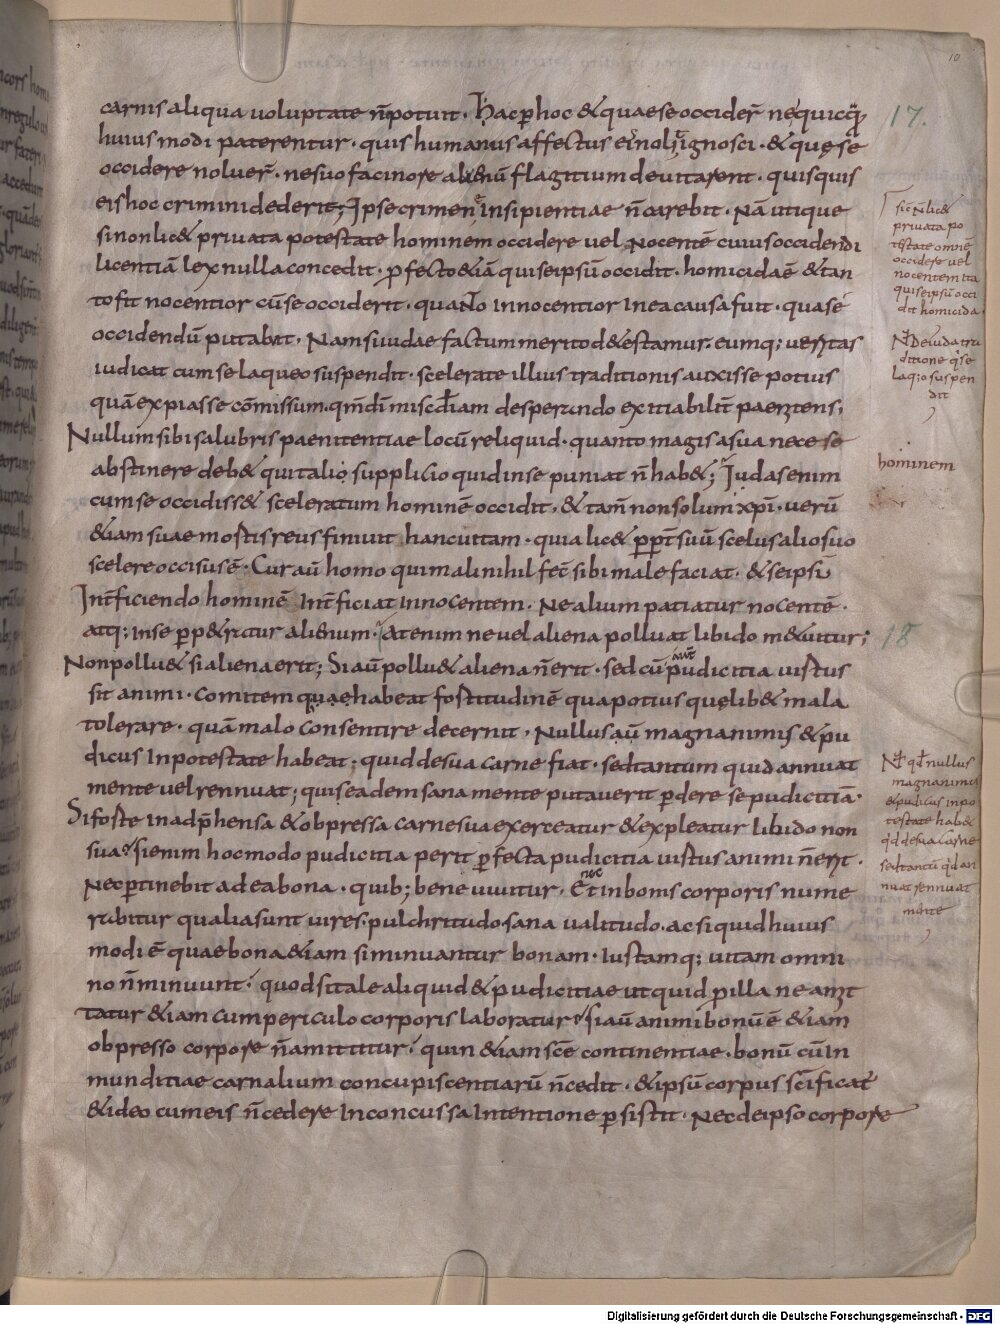 10
carnis aliqua uoluptate n̄potuit. Hac ꝑ hoc & quae se occider̄ ne quicq̄
17.
huius modi paterentur. quis humanus affectus eis nolit ignosci. & quę se
occidere noluer̄. ne suo facinore alienū flagitium deuitarent. quisquis
eis hoc crimini dederit; Ipse crimen insipientiae n̄ carebit. Nā utique
si non lic& priuata potestate hominem occidere uel nocentē cuius occidendi
licentiā lex nulla concedit. ꝓfecto &iā qui seipsū occidit. homicida ē & tan
to fit nocentior cū se occiderit. quanto innocentior in ea causa fuit. qua se
occidendū putabit. Nam si iudae factum merito d&estamur. eumq; ueritas
iudicat cum se laqueo suspendit. scelerate illius traditionis auxisse potius
quā expiasse cōmissum. qm̄ dī misc̄diam desperando exitiabilit̄ paenitens,
Nullum sibi salubris paenitentiae locū reliquid. quanto magis a sua nece se
abstinere deb& qui tali supplicio quid in se puniat n̄ hab&; Iudas enim
cum se occidiss& sceleratum hominē occidit. & tam̄ non solum xp̄i. uerū
&iam suae mortis reus finiuit hanc uitam. quia lic& ꝓpt̄ suū scelus alio suo
scelere occisus ē. Cur aū homo qui mali nihil fec̄ sibi male faciat. & seipsū
Int̄ficiendo hominē Int̄ficiat innocentem. Ne alium patiatur nocentē.
atq; in se perp&retur alienum. At enim ne uel aliena polluat libido m&uitur;
18
Non pollu& si aliena erit; Si aū pollu& aliena n̄ erit. sed cū pudicitia uirtus
sit animi. comitem quae habeat fortitudinē qua potius quęlib& mala
tolerare. quā malo consentire decernit. Nullus aū magnanimis & pu
dicus In potestate habeat. quid de sua carne fiat. sed tantum quid annuat
mente uel rennuat; quis eadem sana mente putauerit ꝑdere se pudicitiā.
Si forte in adp̄hensa & obpressa carne sua exerceatur & expleatur libido non
sua? Si enim hoc modo pudicitia perit ꝓfecta pudicitia uirtus animi n̄ erit.
Nec ꝑtinebit ad ea bona. quib; bene uiuitur. Et nec in bonis corporis nume
rabitur qualia sunt uires. pulchritudo sana ualitudo. ac si quid huius
modi ē quae bona &iam si minuantur bonam. Iustamq; uitam omni
no n̄ minuunt. quod si tale aliquid & pudicitiae ut quid ꝓ illa ne amit
tatur &iam cum periculo corporis laboratur? Si aū animi bonū ē &iam
obpresso corpore n̄ amittitur. quin &iam scē continentiae. bonū cū In
munditiae carnalium concupiscentiarū n̄ cedit. & ipsū corpus sc̄ificat
& ideo cum eis n̄ cedere Inconcussa Intentione ꝑsistit. Nec de ipso corpore
sic n̄ lic&
priuata po
testate omnē
occidere uel
nocentem ita
qui seipsū occi
dit homicida.
Nt̄ De iuda tra
ditione q̄ se
laq;o suspen
dit
hominem
Nt̄ qd̄ nullus
magnanimis
& pudicus in po
testate hab&
qd̄ de sua carne
sed tantū qd̄ an
nuat rennuat
mente
Digitalisierung gefördert durch die Deutsche Forschungsgemeinschaft - DFG